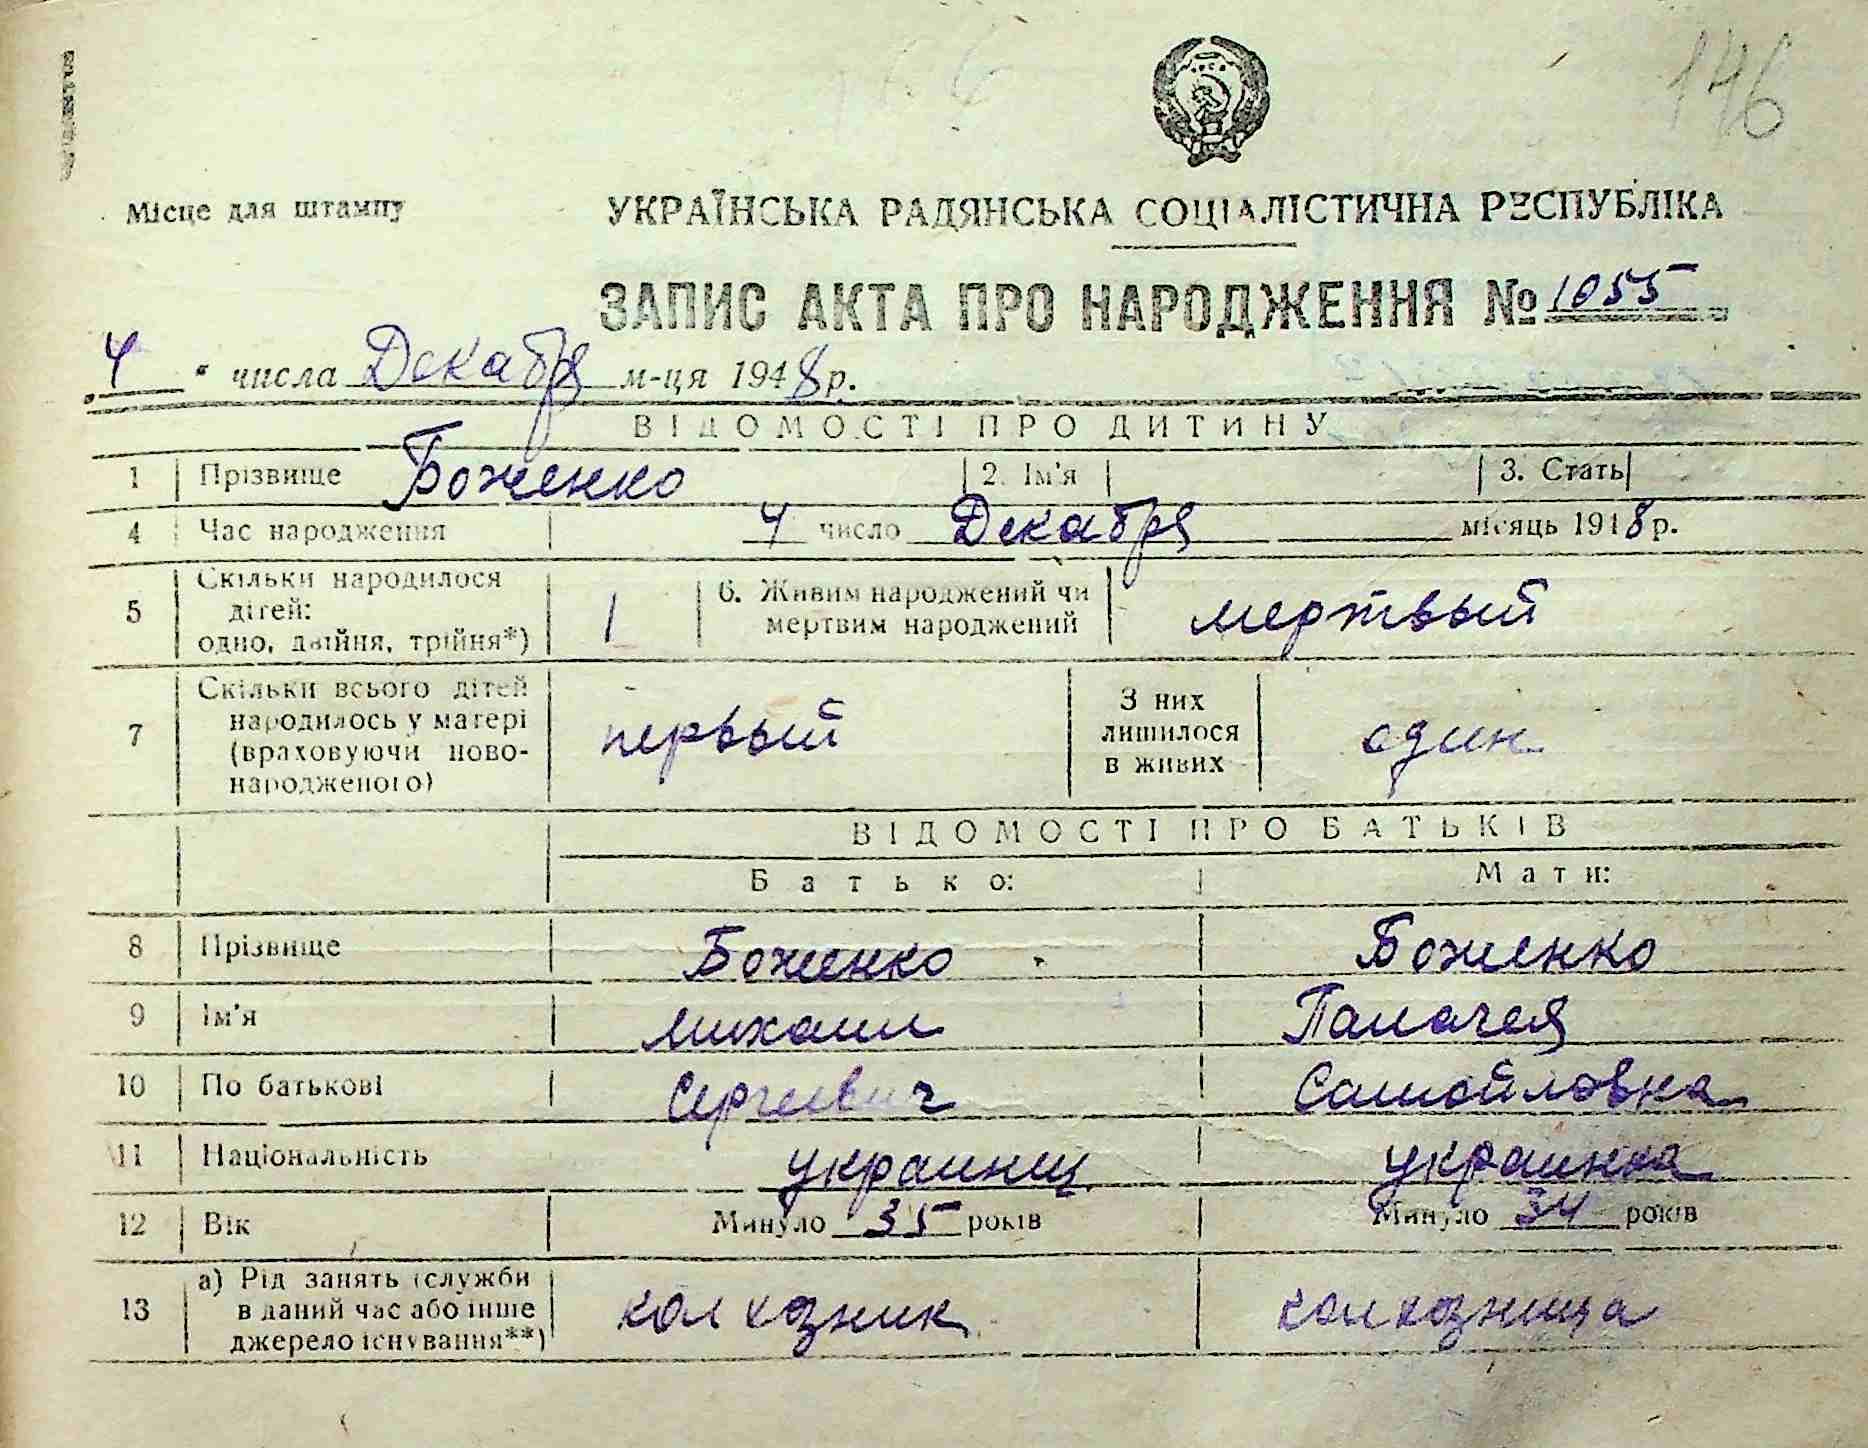 146
Місце для штампу
УКРАЇНСЬКА РАДЯНСЬКА СОЦІАЛІСТИЧНА РЕСПУБЛІКА
ЗАПИС АКТА ПРО НАРОДЖЕННЯ № 1055
4 " числа Декабря м-ця 1948 р.
ВІДОМОСТІ ПРО ДИТИНУ
1 Прізвище Боженко 2. Ім'я 3. Стать
4 Час народження 4 число Декабря місяць 1948 р.
5 Скільки народилося дітей: одно, двійня, трійня*) 1 6. Живим народжений чи мертвим народжений мертвый
7 Скільки всього дітей народилось у матері (враховуючи новонародженого) первый З них лишилося в живих один
ВІДОМОСТІ ПРО БАТЬКІВ
Батько: Мати:
8 Прізвище Боженко Боженко
9 Ім'я Михаил
10 По батькові Сергеевич Самойловна
11 Національність украинец украинка
12 Вік Минуло 35 років Минуло 34 років
13 а) Рід занять (служби в даний час або інше джерело існування**) колхозник колхозница